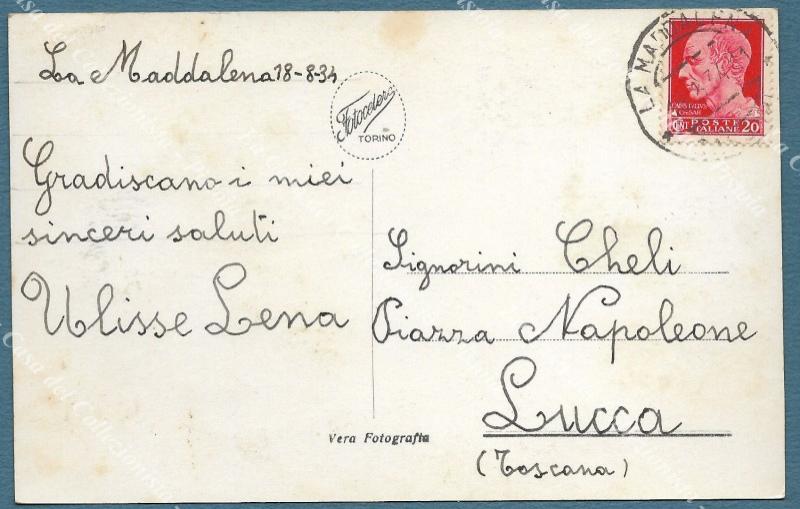 La Maddalena 18-8-34
Fotocelere
TORINO
Gradiscano i miei
sinceri saluti
Ulisse Lena
LA MADDALENA
POSTE
ITALIANE
CENT 20
Signorini Cheli
Piazza Napoleone
Lucca
(Toscana)
Vera Fotografia